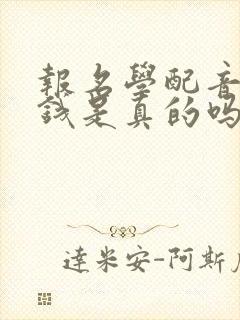 報名學配音
錢是真的嗎
達米安-阿斯